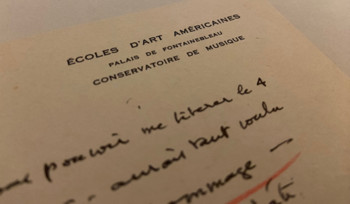 ÉCOLES D'ART AMÉRICAINES
PALAIS DE FONTAINEBLEAU
CONSERVATOIRE DE MUSIQUE
pouvoir me libérer le 4
aurait tant voulu